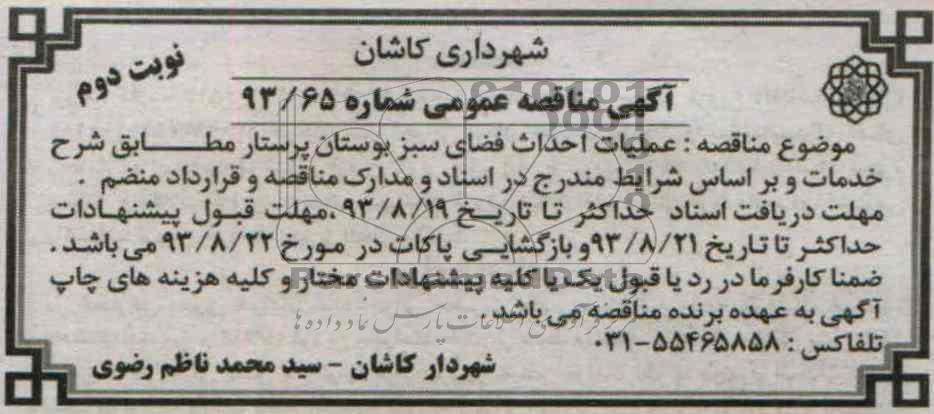 شهرداری کاشان
نوبت دوم
آگهی مناقصه عمومی شماره ۹۳/۶۵
موضوع مناقصه : عملیات احداث فضای سبز بوستان پرستار مطابق شرح
خدمات و بر اساس شرایط مندرج در اسناد و مدارک مناقصه و قرارداد منضم .
مهلت دریافت اسناد حداکثر تا تاریخ ۹۳/۸/۱۹ ،مهلت قبول پیشنهادات
حداکثر تا تاریخ ۹۳/۸/۲۱ و بازگشایی پاکات در مورخ ۹۳/۸/۲۲ می باشد .
ضمنا کارفرما در رد یا قبول یک یا کلیه پیشنهادات مختار و کلیه هزینه های چاپ
آگهی به عهده برنده مناقصه می باشد .
تلفاکس : ۵۵۴۶۵۸۵۸-۰۳۱
شهردار کاشان - سید محمد ناظم رضوی